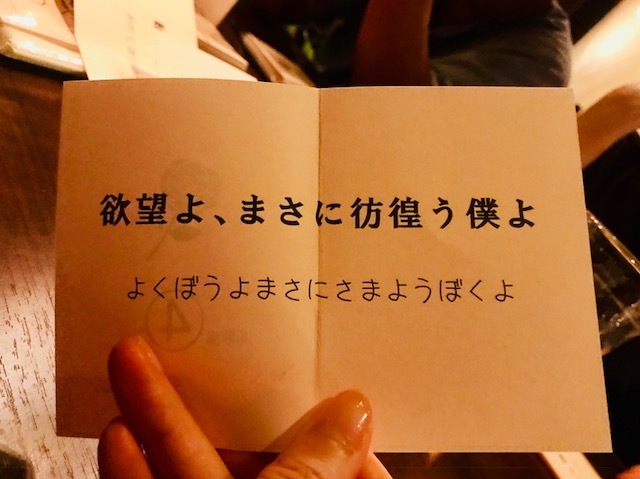 欲望よ、まさに彷徨う僕よ
よくぼうよまさにさまようぼくよ
④